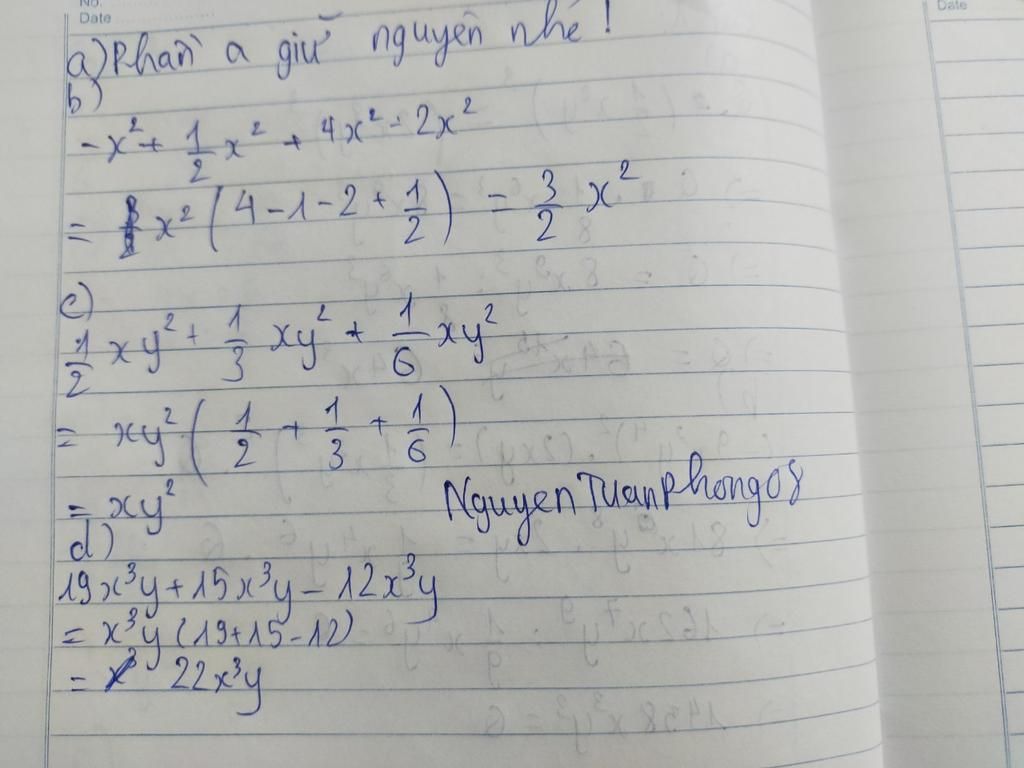 No.
Date
Date
a) Phần a giữ nguyên nhé!
b)
-x² + 1/2 x² + 4x² - 2x²
= x² (4 - 1 - 2 + 1/2) = 3/2 x²
c)
1/2 xy² + 1/3 xy² + 1/6 xy²
= xy² (1/2 + 1/3 + 1/6)
= xy²
NguyenTuanPhong08
d)
19x³y + 15x³y - 12x³y
= x³y (19 + 15 - 12)
= 22x³y